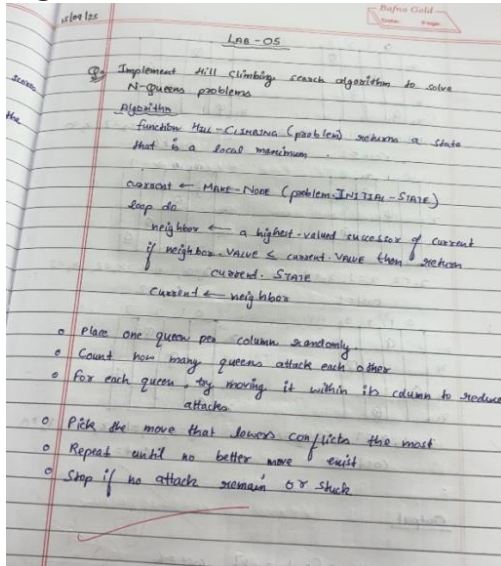 15/09/25
Bafna Gold
Date: Page:
LAB-05
Q. Implement Hill Climbing search algorithm to solve
N-Queens problems
Algorithm
function HILL-CLIMBING (problem) return a state
that is a local maximum.
current ← MAKE-NODE (problem. INITIAL-STATE)
loop do
neighbor ← a highest-valued successor of current
if neighbor. VALUE ≤ current. VALUE then return
current. STATE
current ← neighbor
o Place one queen per column randomly.
o Count how many queens attack each other
o For each queen, try moving it within its column to reduce
attacks
o Pick the move that lowers conflicts the most
o Repeat until no better move exist
o Stop if no attack remain or stuck
the